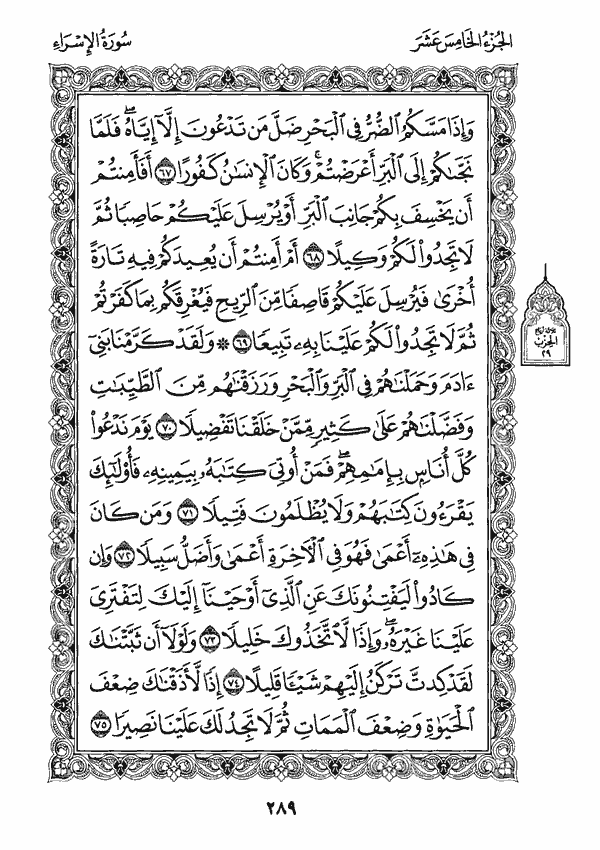 الجُزْءُ الخَامِسَ عَشَرَ
سُورَةُ الإِسْرَاءِ
وَإِذَا مَسَّكُمُ ٱلضُّرُّ فِي ٱلْبَحْرِ ضَلَّ مَن تَدْعُونَ إِلَّآ إِيَّاهُۖ فَلَمَّا
نَجَّىٰكُمْ إِلَى ٱلْبَرِّ أَعْرَضْتُمْۚ وَكَانَ ٱلْإِنسَٰنُ كَفُورًا ٦٧ أَفَأَمِنتُمْ
أَن يَخْسِفَ بِكُمْ جَانِبَ ٱلْبَرِّ أَوْ يُرْسِلَ عَلَيْكُمْ حَاصِبًا ثُمَّ
لَا تَجِدُوا۟ لَكُمْ وَكِيلًا ٦٨ أَمْ أَمِنتُمْ أَن يُعِيدَكُمْ فِيهِ تَارَةً
أُخْرَىٰ فَيُرْسِلَ عَلَيْكُمْ قَاصِفًا مِّنَ ٱلرِّيحِ فَيُغْرِقَكُم بِمَا كَفَرْتُمْ
ثُمَّ لَا تَجِدُوا۟ لَكُمْ عَلَيْنَا بِهِۦ تَبِيعًا ٦٩ ۞ وَلَقَدْ كَرَّمْنَا بَنِيٓ
ءَادَمَ وَحَمَلْنَٰهُمْ فِي ٱلْبَرِّ وَٱلْبَحْرِ وَرَزَقْنَٰهُم مِّنَ ٱلطَّيِّبَٰتِ
وَفَضَّلْنَٰهُمْ عَلَىٰ كَثِيرٍ مِّمَّنْ خَلَقْنَا تَفْضِيلًا ٧٠ يَوْمَ نَدْعُوا۟
كُلَّ أُنَاسٍۭ بِإِمَٰمِهِمْۖ فَمَنْ أُوتِيَ كِتَٰبَهُۥ بِيَمِينِهِۦ فَأُو۟لَٰٓئِكَ
يَقْرَءُونَ كِتَٰبَهُمْ وَلَا يُظْلَمُونَ فَتِيلًا ٧١ وَمَن كَانَ
فِي هَٰذِهِۦٓ أَعْمَىٰ فَهُوَ فِي ٱلْءَاخِرَةِ أَعْمَىٰ وَأَضَلُّ سَبِيلًا ٧٢ وَإِن
كَادُوا۟ لَيَفْتِنُونَكَ عَنِ ٱلَّذِيٓ أَوْحَيْنَآ إِلَيْكَ لِتَفْتَرِيَ
عَلَيْنَا غَيْرَهُۥۖ وَإِذًا لَّٱتَّخَذُوكَ خَلِيلًا ٧٣ وَلَوْلَآ أَن ثَبَّتْنَٰكَ
لَقَدْ كِدتَّ تَرْكَنُ إِلَيْهِمْ شَيْـًٔا قَلِيلًا ٧٤ إِذًا لَّأَذَقْنَٰكَ ضِعْفَ
ٱلْحَيَوٰةِ وَضِعْفَ ٱلْمَمَاتِ ثُمَّ لَا تَجِدُ لَكَ عَلَيْنَا نَصِيرًا ٧٥
الحِزْب
٢٩
٢٨٩